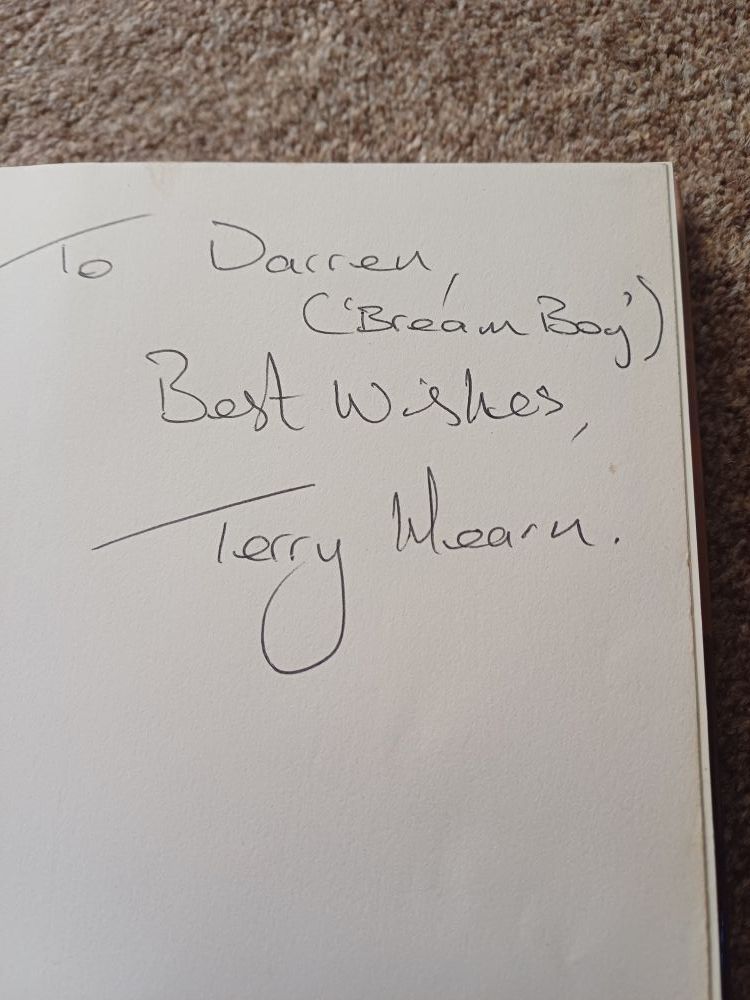 To Darren,
('Bream Boy')
Best Wishes,
Terry Hearn.